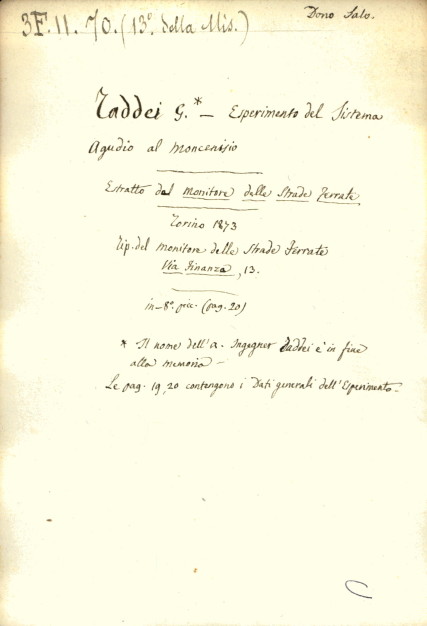 3F.11.70. (13º. della Mis.)
Dono Salo.
Taddei G.* — Esperimento del Sistema
Agudio al Moncenisio
Estratto dal Monitore delle Strade Ferrate
Torino 1873
Tip. del Monitore delle Strade Ferrate
Via Finanza, 13.
in-8º. picc. (pag. 20)
* Il nome dell'a. Ingegner Taddei è in fine
alla memoria —
Le pag. 19, 20 contengono i Dati generali dell'Esperimento —